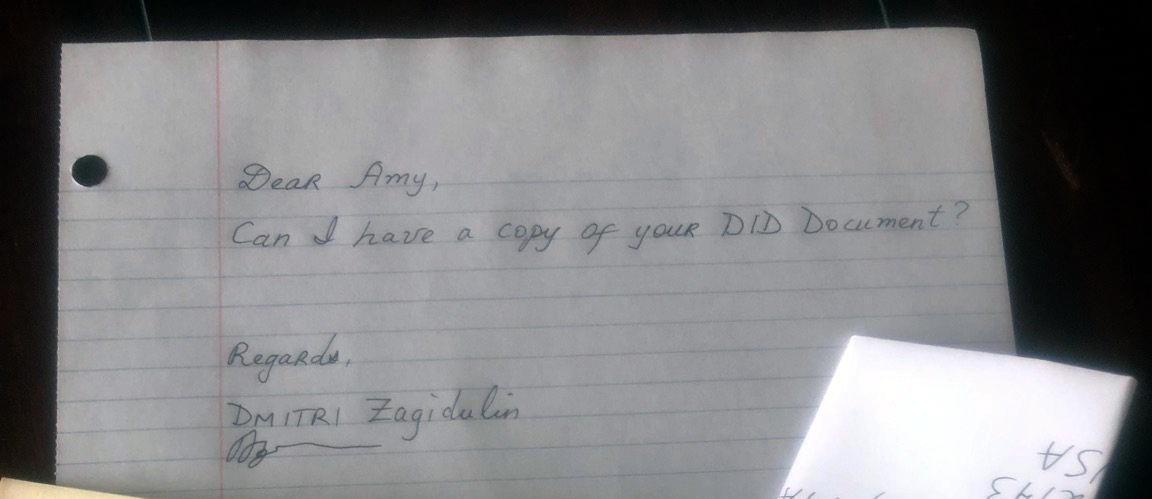 Dear Amy,
Can I have a copy of your DID Document?
Regards,
DMITRI Zagidulin
USA